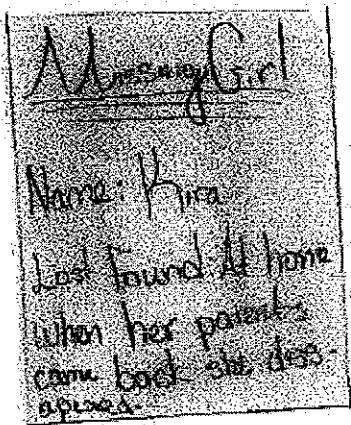 A Missing Girl
Name: Kira
Last found At home
when her parents
came back she diss-
apired.